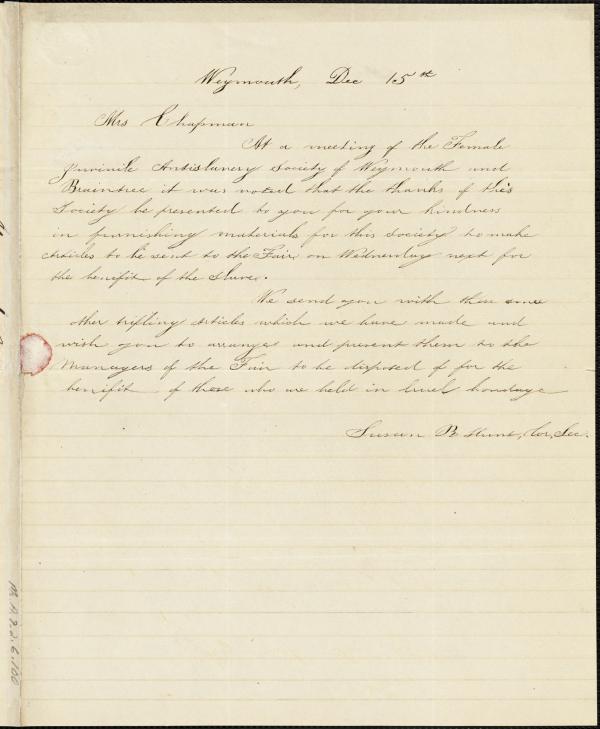 Weymouth, Dec 15th
Mrs Chapman
At a meeting of the Female
Juvinile Antislavery Society of Weymouth and
Braintree it was voted that the thanks of this
Society be presented to you for your kindness
in furnishing materials for this Society to make
articles to be sent to the Fair on Wednesday next for
the benefit of the Slave.
We send you with these some
other trifling articles which we have made and
wish you to arrange and present them to the
Managers of the Fair to be disposed of for the
benifit of those who are held in cruel bondage
Susan B Hunt, Cor, Sec.